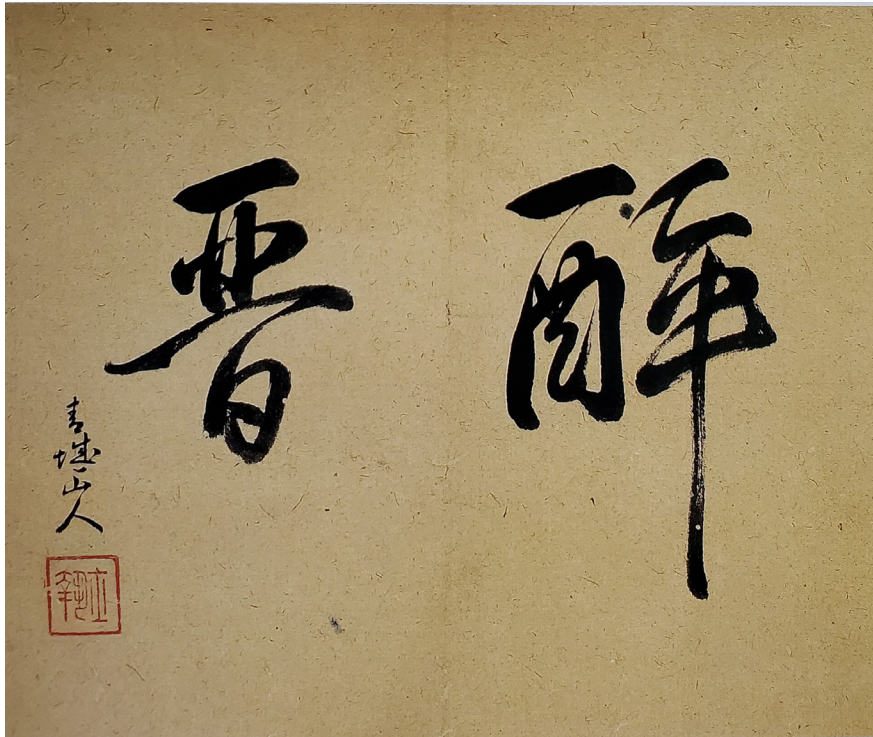 醉晋
青城山人